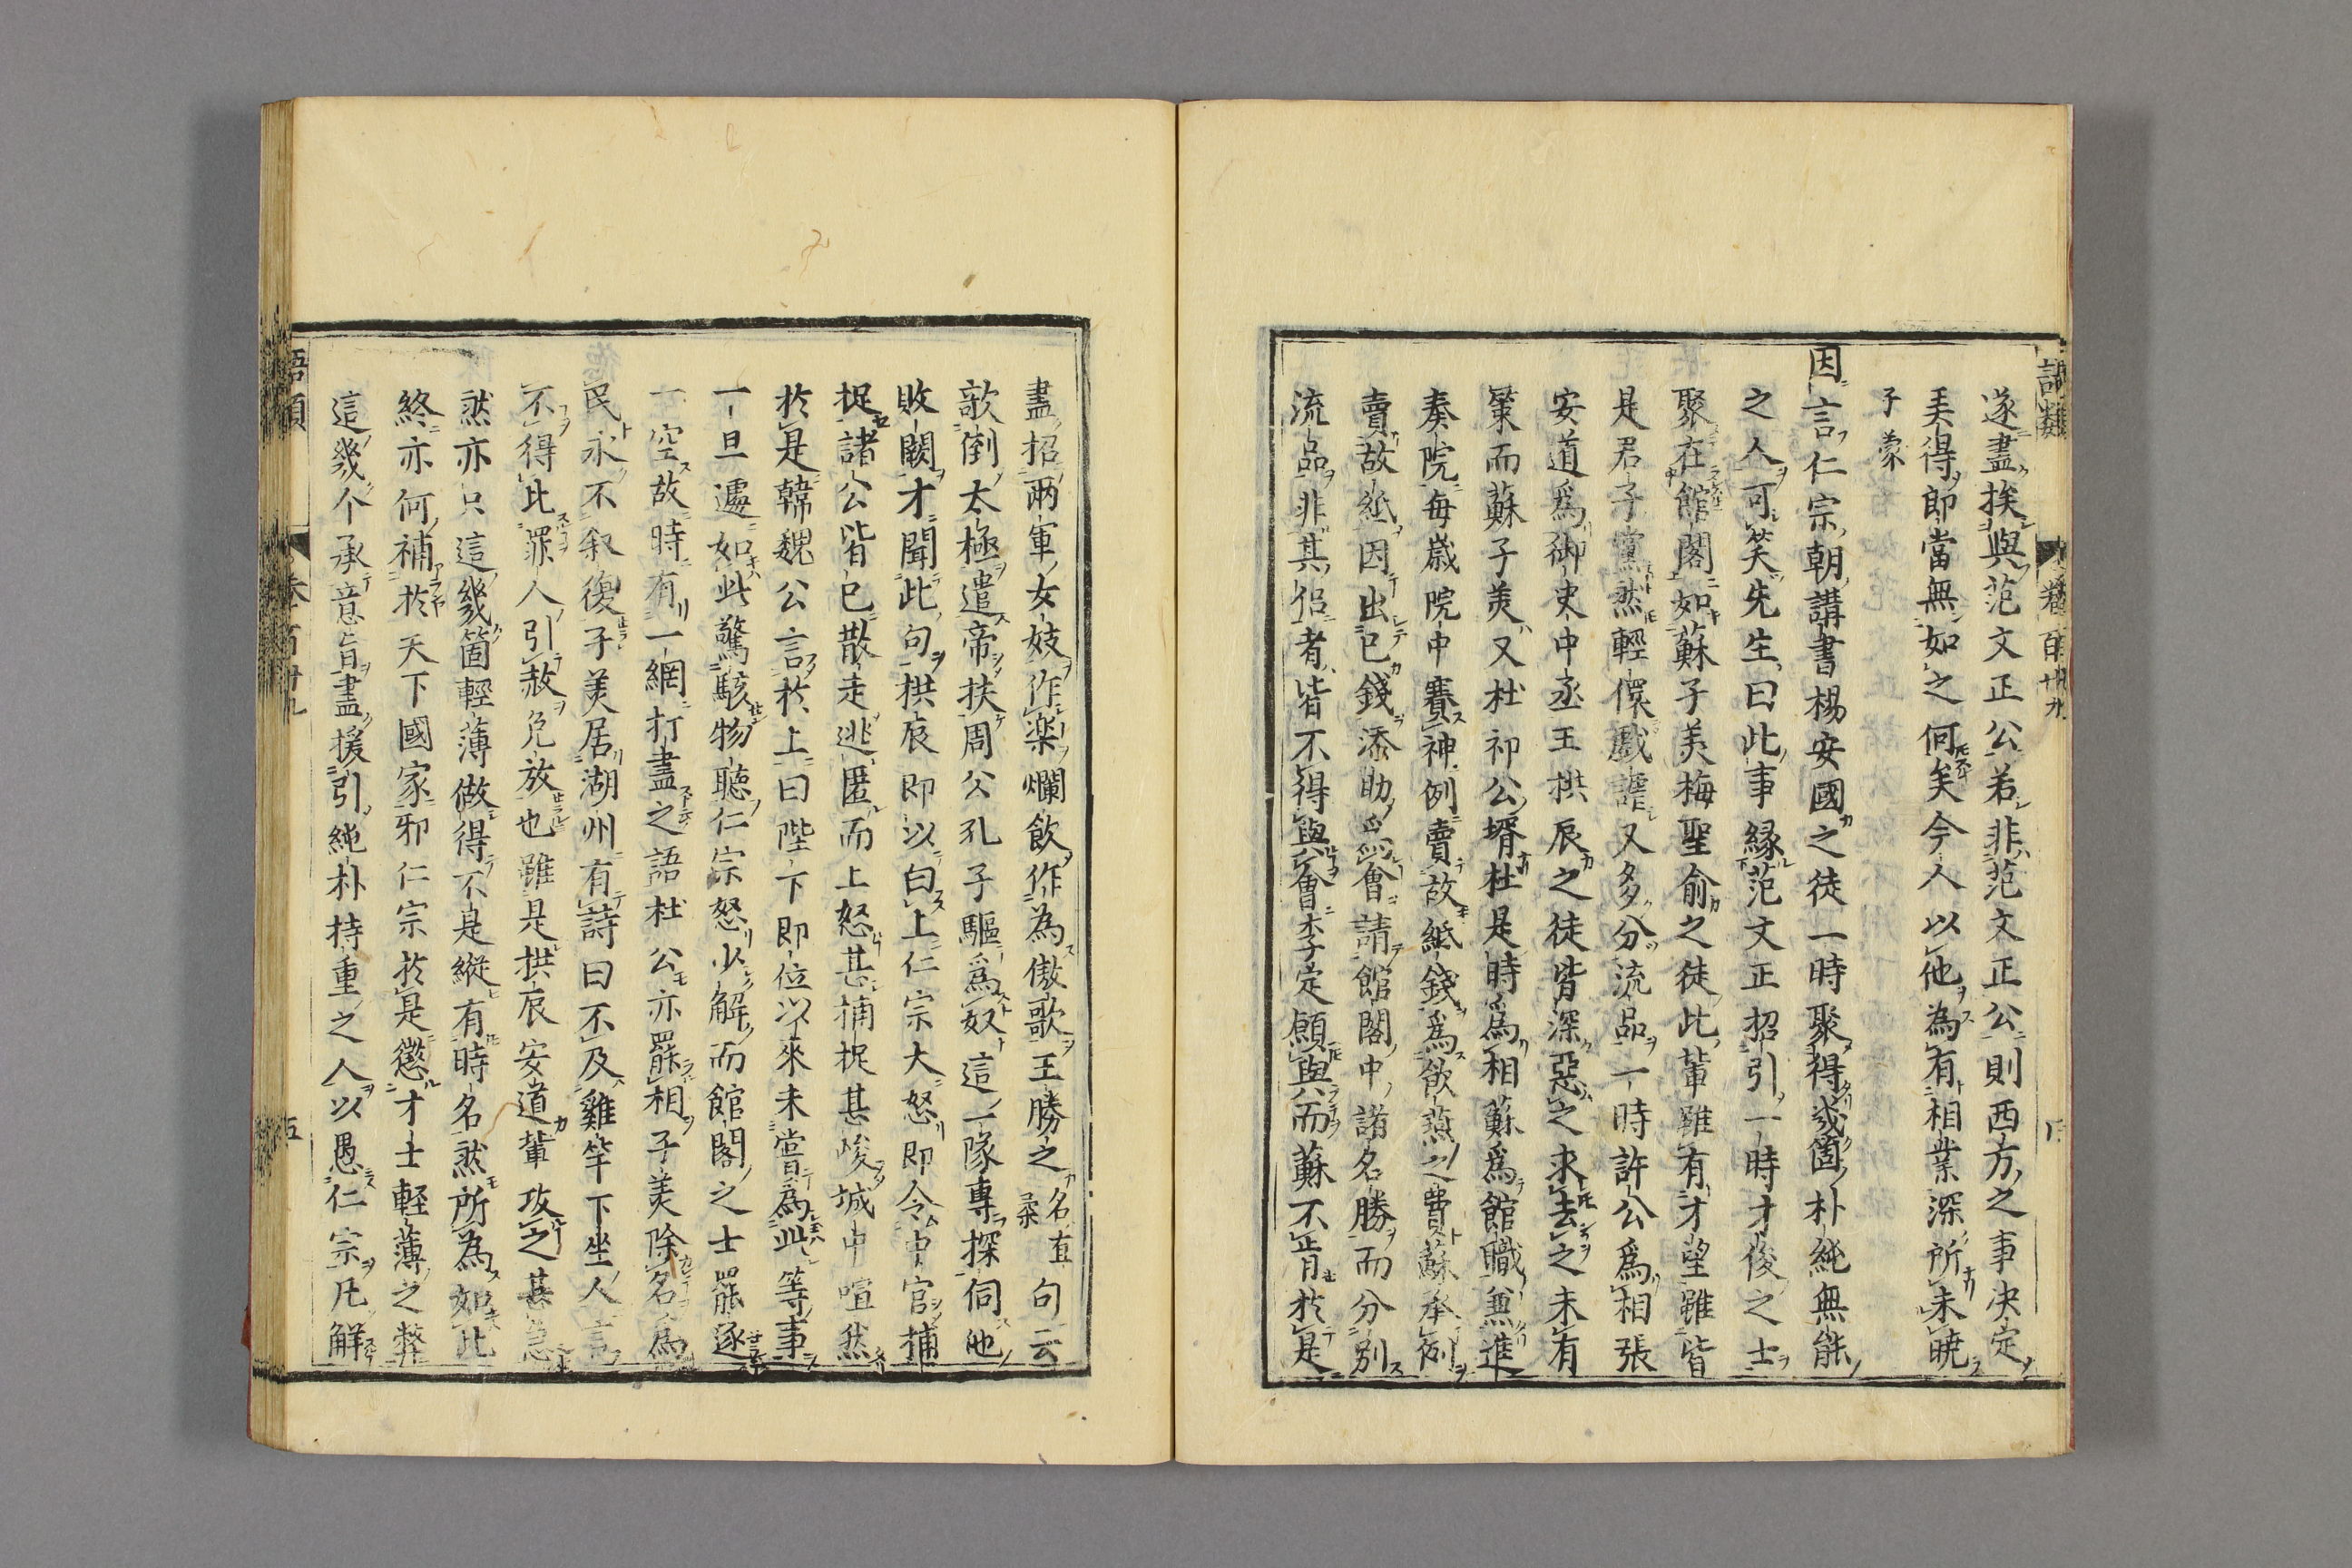 語類 卷百廿九
遂盡挨與范文正公若非范文正公則西方之事決定
弄得即當無如之何矣今人以他為有相業深所未曉
子蒙
因言仁宗朝講書楊安國之徒一時聚得幾箇朴純無能
之人可笑先生曰此事縁范文正招引一時才俊之士
聚在館閣如蘇子美梅聖俞之徒此輩雖有才望雖皆
是君子黨然輕儇戲謔又多分流品一時許公為相張
安道為御史中丞王拱辰之徒皆深惡之求去之未有
策而蘇子美又杜祁公壻杜是時為相蘇為館職兼進
奏院每歳院中賽神例賣故紙錢為飲燕之費蘇承例
賣故紙因出己錢添助為會請館閣中諸名勝而分別
流品非其侶者皆不得與會李定願與而蘇不肯於是
盡招兩軍女妓作樂爛飲作為傲歌王勝之名直柔句云
歌倒太極遣帝扶周公孔子驅為奴這一隊專探伺他
敗闕才聞此句拱辰即以白上仁宗大怒即令中官捕
捉諸公皆已散走逃匿而上怒甚捕捉甚峻城中喧然
於是韓魏公言於上曰陛下即位以來未嘗為此等事
一旦遽如此驚駭物聽仁宗怒少解而館閣之士罷逐
一空故時有一網打盡之語杜公亦罷相子美除名為
民永不叙復子美居湖州有詩曰不及雞竿下坐人言
不得比罪人引赦免放也雖是拱辰安道輩攻之甚急
然亦只這幾箇輕薄做得不是縦有時名然所為如此
終亦何補於天下國家邪仁宗於是懲才士軽薄之弊
這幾个承意旨盡援引純朴持重之人以愚仁宗凡解
語類 卷百廿九 五